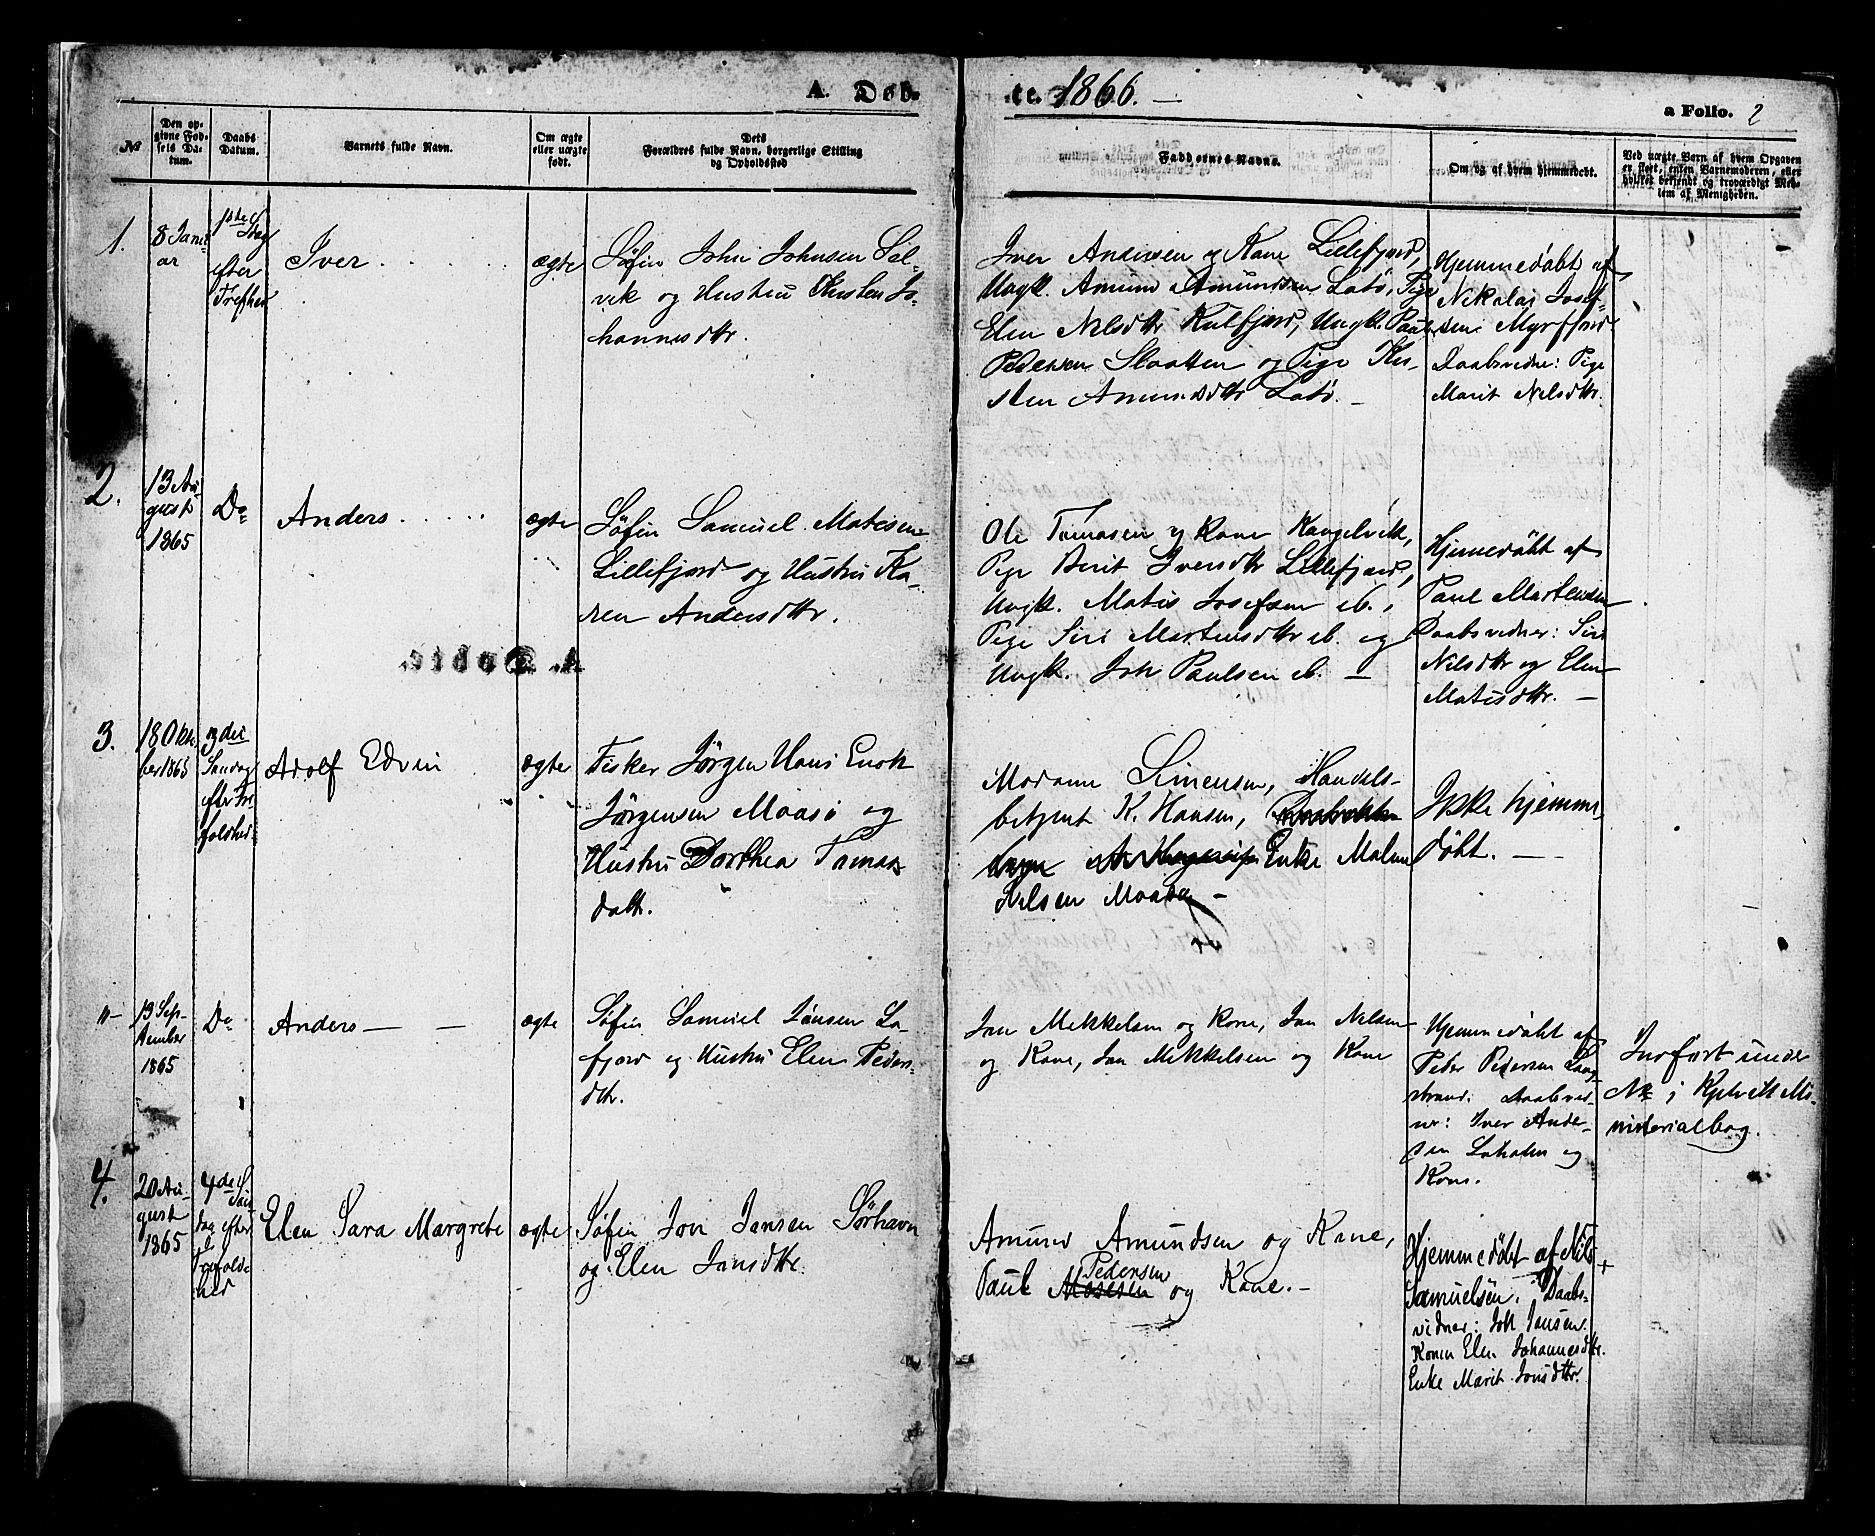 A. Døb-
te. 1866. —
a Folio. 2
No
Den op-
givne Fød-
sels Da-
tum.
Daabs
Datum.
Barnets fulde Navn.
Om ægte
eller uægte
født.
Dets
Forældres fulde Navn, borgerlige Stilling
og Opholdsted
Faddernes Navne.
Om og af hvem hjemmedøbt.
Ved uægte Børn af hvem Opgaven
er skeet, enten Barnemoderen, eller
hvilket bekjendt og troværdigt Med-
lem af Menigheden.
1.
8 Janu-
ar
1ste S.
Dag
efter
Trefhed
Iver . . . . .
ægte
Søfin John Johnsen Sel-
vik og Hustru Kirsten Jo-
hannesdtr.
Iver Andersen og Kone Lillefjord,
Ungk. Amund Amundsen Latø, Pige
Elen Nilsdtr Kulfjord, Ungk. Paul
Pedersen Slaatten og Pige Kir-
sten Amundsdtr Latø. —
Hjemmedøbt af
Nikolai Josef-
sen Myrfjord
Daabsvidne: Pige
Marit Nilsdtr.
2.
13 Au-
gust
1865
Do
Anders . . . . .
ægte
Søfin Samuel Matisen
Lillefjord og Hustru Ka-
ren Andersdtr.
Ole Tomasen og Kone Kangelvik,
Pige Berit Iversdtr Lillefjord,
Ungk. Matis Josefsen ib.,
Pige Siri Martensdtr ib. og
Ungk. Joh Paulsen ib. —
Hjemmedøbt af
Paul Martensen
Daabsvidner: Siri
Nilsdtr og Elen
Matisdtr. —
3.
18 Okto-
ber 1865
3die
Søndag
efter Tre-
foldhed
Adolf Edvin
ægte
Fisker Jørgen Hans Enok
Jørgensen Maasø og
Hustru Dorthea Tomas
datr.
Madame Simensen, Handels-
betjent K. Hansen,
Enke Malene
Nilsen Maasø —
Ikke hjemme-
døbt. —
"–
13 Sep-
tember
1865
Do
Anders — —
ægte
Søfin Samuel Jonsen La-
fjord og Hustru Elen Peders-
dtr.
Jan Mikkelsen og Kone, Jan Nilsen
og Kone, Jan Mikkelsen og Kone
Hjemmedøbt af
Peder Pedersen Lang-
strand. Daabsvid-
ner: Iver Ander-
sen Laholen og
Kone.
Indført under
No i Kjelvik Mi-
nisterialbog.
4.
20 Au-
gust
1865
4de S.
Søn-
dag efter
Trefolds-
hed
Elen Sara Margrete
ægte
Søfin Jon Jansen Sørhavn
og Elen Jansdtr.
Amund Amundsen og Kone,
Pedersen
Paul Mosesen og Kone. —
Hjemmedøbt af Nils
Samuelsen. Daabs-
vidner: Joh Jansen.
Konen Elen Johannesdtr.
Enke Marit Jonsdtr.